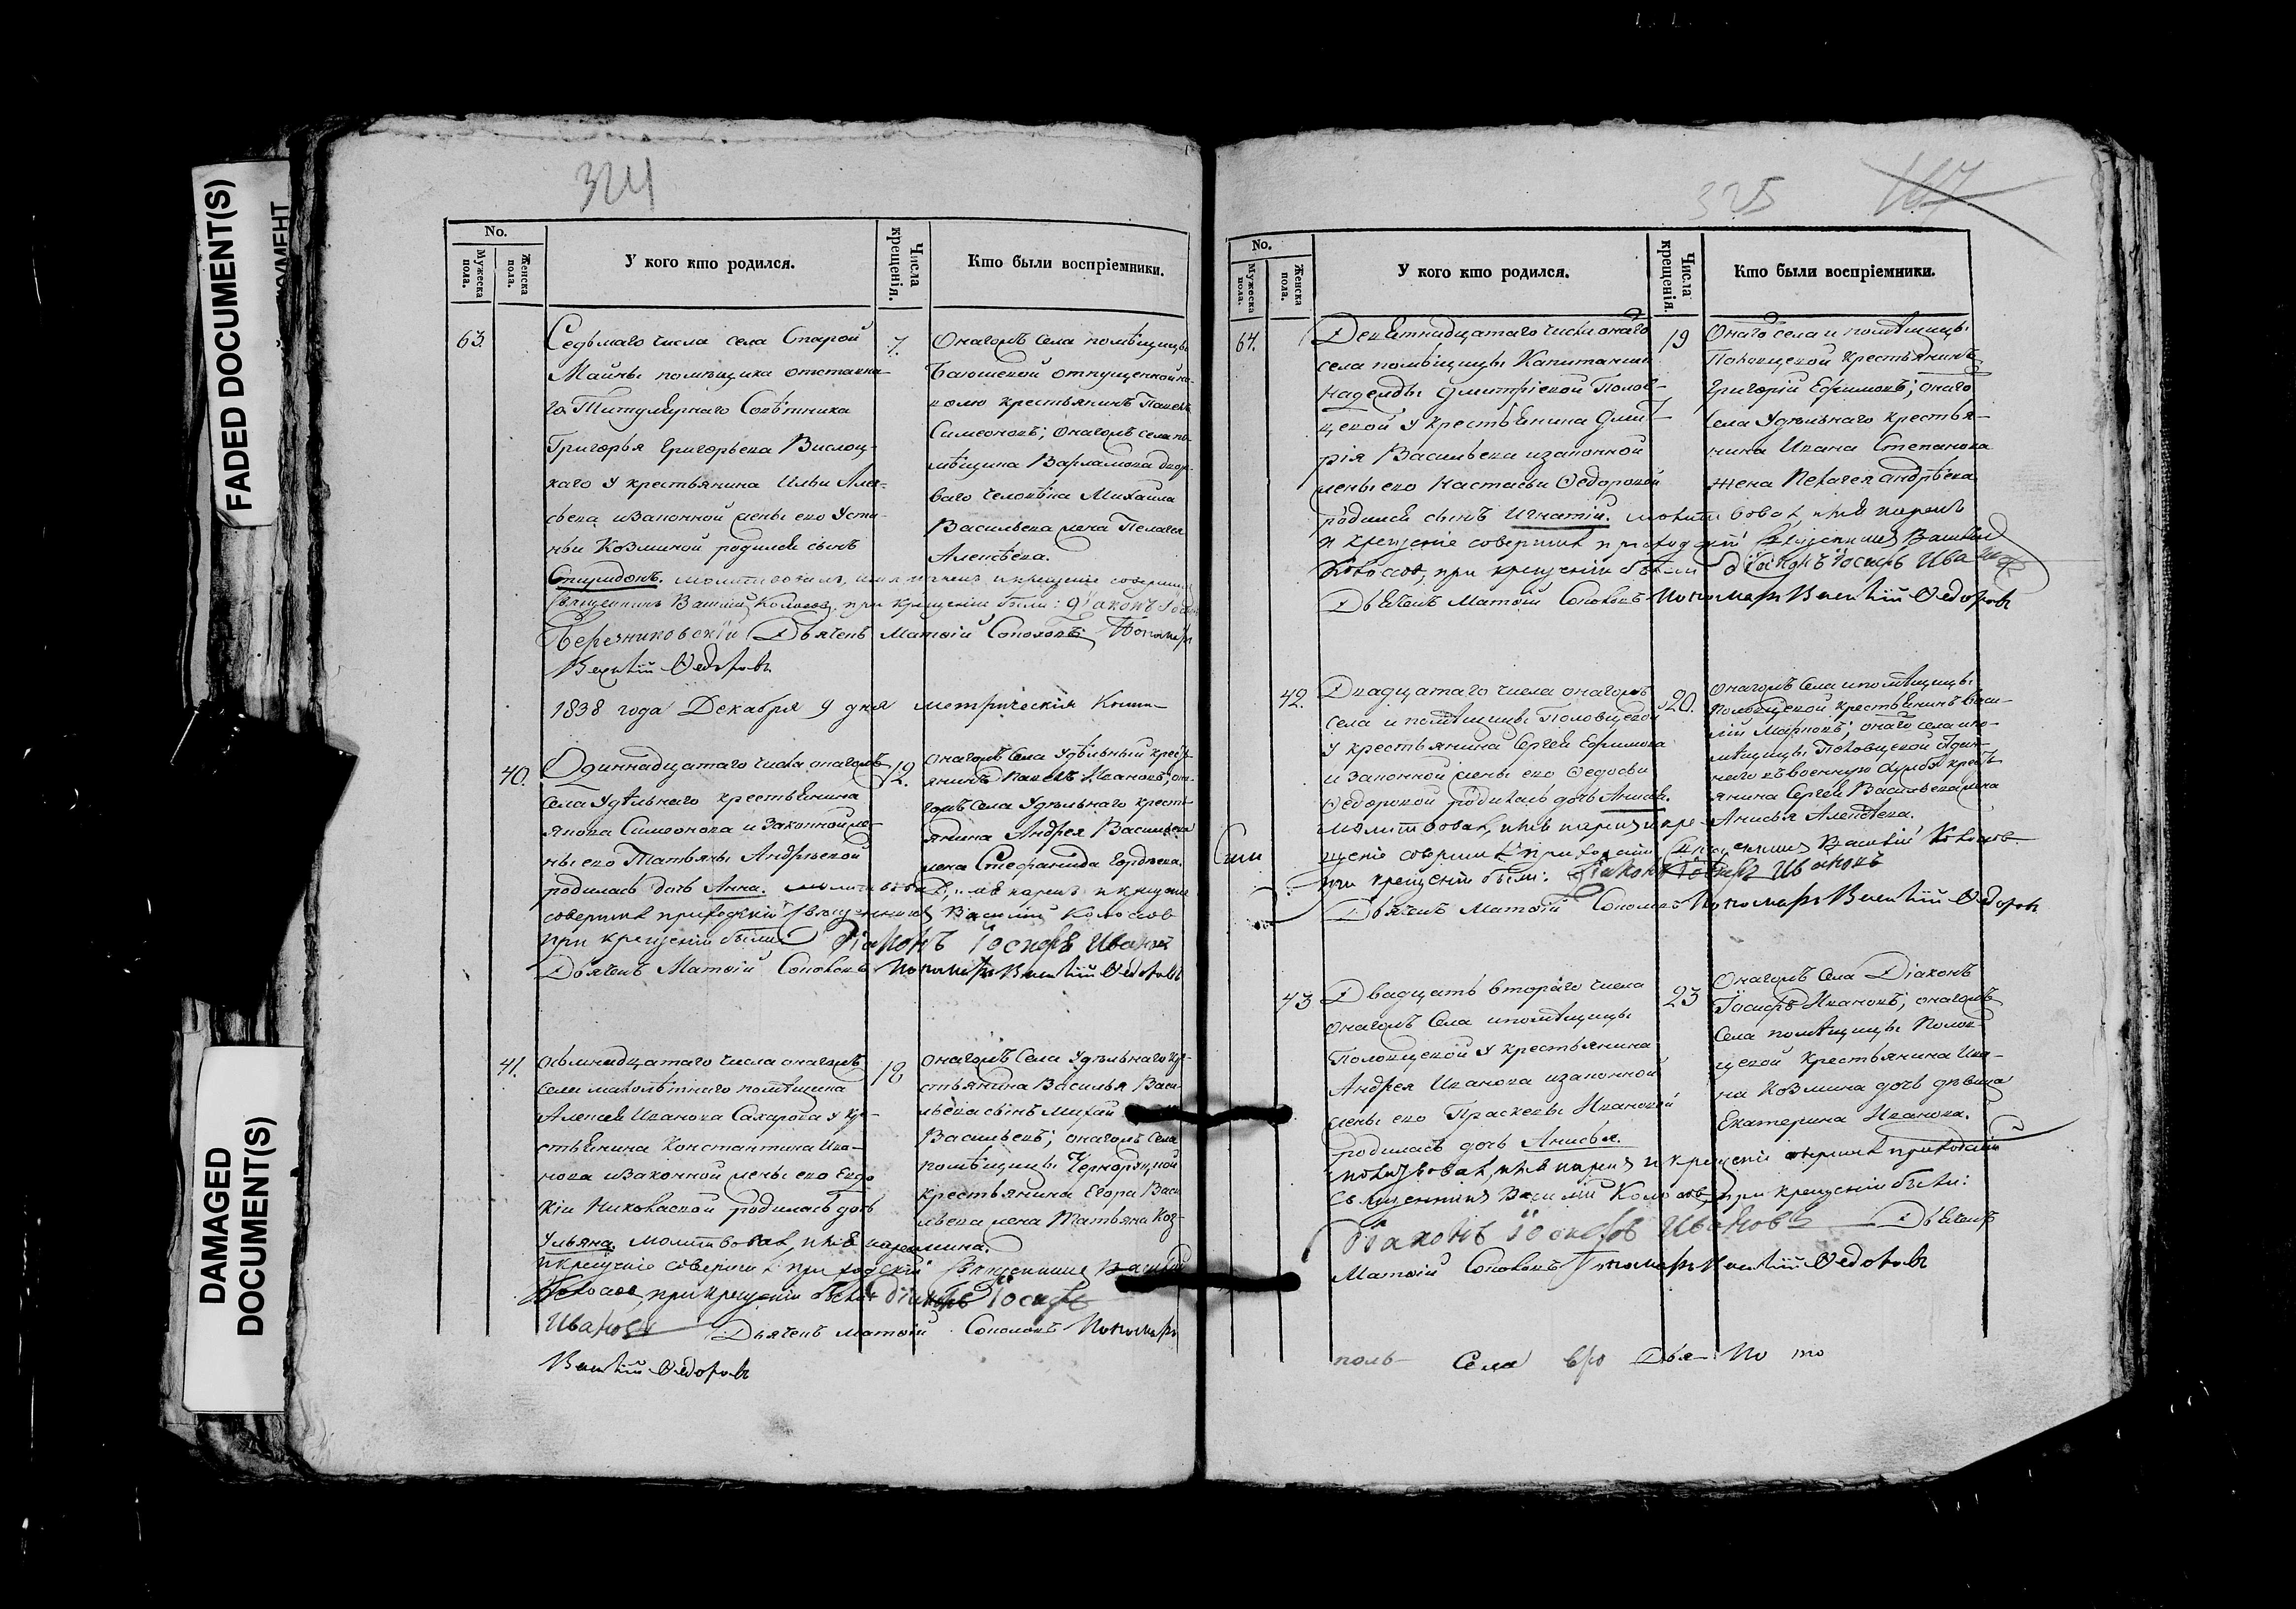 FADED DOCUMENT(S)
DAMAGED
DOCUMENT(S)
324
No.
Мужеска пола.
Женска пола.
У кого кто родился.
Числа крещенія.
Кто были воспріемники.
63.
Седьмаго числа села Старой
Майны помѣщика отставна-
го Титулярнаго Совѣтника
Григорья Григорьева Вислоц-
каго у крестьянина Ильи Алек-
сѣева и законной жены его Усти-
ньи Козминой родился сынъ
Спиридонъ. молитвовалъ, имя нарекъ и крещеніе совершилъ
Священникъ Василій Колосов, при крещеніи были: Діаконъ
Березниковскій Дьячекъ Матѳій Соколовъ Пономарь
Василій Ѳедоровъ
7.
Онагожъ села помѣщицы
отпущенной на
волю крестьянинъ Павелъ
Симеоновъ; онагожъ села по-
мѣщика Варламова двор-
ваго человѣка Михаила
Васильева жена Пелагея
Алексѣева.
1838 года Декабря 9 дня метрическія Книги
40.
Одиннадцатаго числа онагожъ
села Удѣльнаго крестьянина
Якова Симеонова и законной же-
ны его Татьяны Андреевой
родилась дочь Анна. молитвовалъ, имя нарекъ и крещеніе
совершилъ приходскій священникъ Василій Колосов
при крещеніи были Діаконъ Іосифъ Ивановъ
Дьячекъ Матѳій Соколовъ Пономарь Василій Ѳедоровъ
12.
Онагожъ Села Удѣльный кресть-
янинъ Павелъ Ивановъ; она-
гожъ села Удѣльнаго кресть-
янина Андрея Васильева
жена Стефанида Гордѣева.
41.
Осьмнадцатаго числа онагожъ
села малолѣтняго помѣщика
Алексѣя Иванова Сахарова у кре-
стьянина Константина Ива-
нова и законной жены его Евдо
кіи Николаевой родилась дочь
Ульяна. молитвовалъ, имя нарекъ
и крещеніе совершилъ приходскій священникъ Василій
Колосов, при крещеніи были діаконъ Іосифъ
Ивановъ Дьячекъ Матѳій Соколовъ Пономарь
Василій Ѳедоровъ
18
Онагожъ Села Удѣльнаго кре-
стьянина Василья Васи
льева сынъ Михаи
Васильевъ; онагожъ Села
помѣщицы
крестьянина Егора Васи
льева жена Татьяна Коз-
мина.
325
167
No.
Мужеска пола.
Женска пола.
У кого кто родился.
Числа крещенія.
Кто были воспріемники.
64.
Девятнадцатаго числа онаго
села помѣщицы Капитанши
Надежды Дмитріевой Полов-
цевой у крестьянина Дмит
рія Васильева и законной
жены его Настасьи Ѳедоровой
родился сынъ Игнатій. молитвовалъ, имя нарекъ
и крещеніе совершилъ приходскій священникъ Василій
Колосов, при крещеніи были діаконъ Іосифъ Ивановъ
Дьячекъ Матѳій Соколовъ Пономарь Василій Ѳедоровъ
19
Онаго села и помѣщицы
Половцевой Крестьянинъ
Григорій Ефимовъ; онаго
Села Удѣльнаго крестья-
нина Ивана Степанова
жена Пелагея Андрѣева
42.
Двадцатаго числа онагожъ
села и помѣщицы Половцевой
у крестьянина Сергея Ефимова
и законной жены его Ѳедосьи
Ѳедоровой родилась дочь Анисья.
молитвовалъ, имя нарекъ и кре-
щеніе совершилъ приходскій Священникъ Василій Колосов.
при крещеніи были: діаконъ Іосифъ Ивановъ
Дьячекъ Матѳій Соколовъ Пономарь Василій Ѳедоровъ
20.
Онагожъ Села и помѣщицы
Половцевой крестьянинъ Васи-
лій Марковъ; онаго села и по-
мѣщицы Половцевой отдан-
наго въ военную службу кресть
янина Сергея Васильева жена
Анисья Алексѣева.
43
Двадцать втораго числа
онагожъ Села и помѣщицы
Половцевой у крестьянина
Андрея Иванова и законной
жены его Прасковьи Ивановой
родилась дочь Анисья.
молитвовалъ, имя нарекъ и крещеніе совершилъ приходскій
Священникъ Василій Колосов, при крещеніи были:
Діаконъ Іосифъ Ивановъ Дьячекъ
Матѳій Соколовъ Пономарь Василій Ѳедоровъ
23
Онагожъ Села Діаконъ
Іосифъ Ивановъ; онагожъ
Села помѣщицы Полов-
цевой крестьянина Ива-
на Козмина дочь дѣвица
Екатерина Иванова.
Села Дья- По